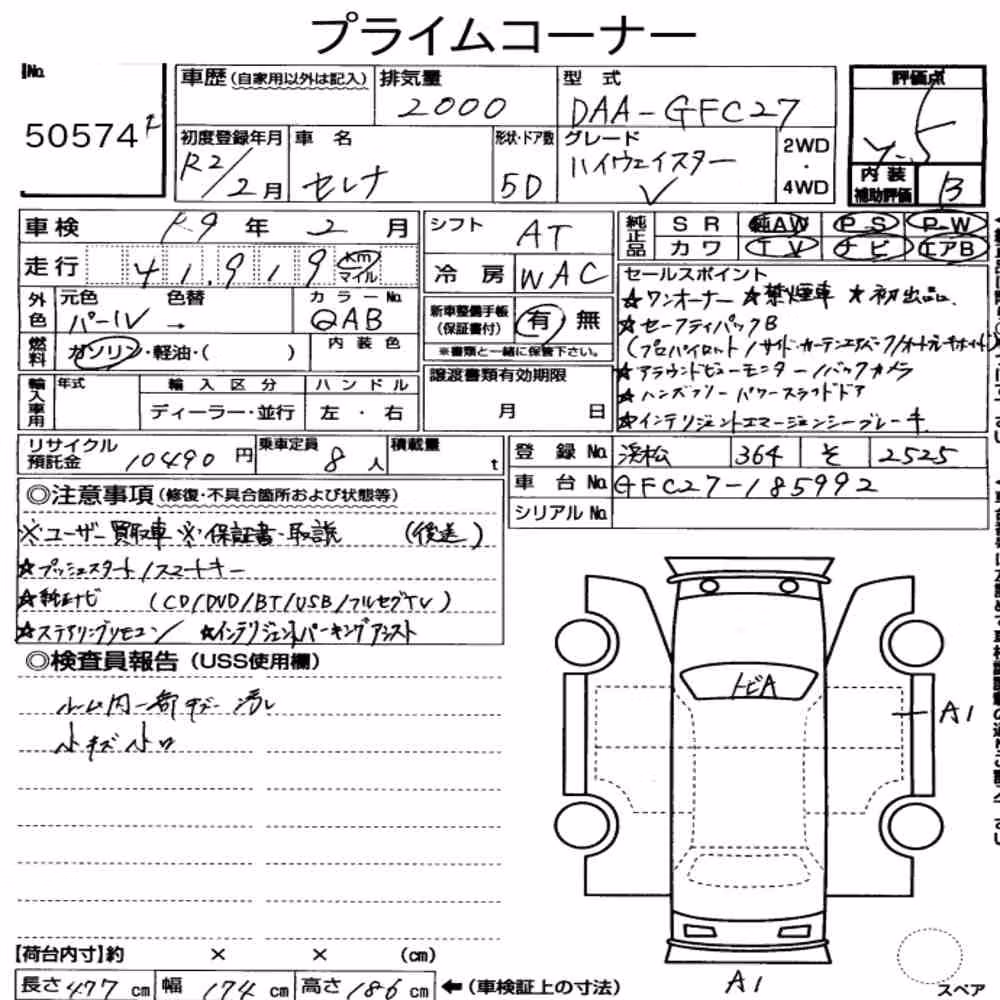 プライムコーナー
No.
50574
車歴 (自家用以外は記入)
排気量
2000
型式
DAA-GFC27
評価点
初度登録年月
R2/2月
車名
セレナ
形状・ドア数
5D
グレード
ハイウェイスター
V
2WD
・
4WD
内装
補助評価
B
車検 R9年 2月
シフト
AT
純正品
SR 純AW PS PW
カワ TV ナビ エアB
走行 41,919 km
マイル
冷房
WAC
セールスポイント
☆ワンオーナー ☆禁煙車 ☆初出品、
☆セーフティパックB
(プロパイロット/サイド・カーテンエアバッグ/オートブレーキホールド)
☆アラウンドビューモニター/バックカメラ
☆ハンズフリーパワースライドドア
☆インテリジェントエマージェンシーブレーキ
外色
元色 色替 カラーNo.
パール → QAB
新車整備手帳
(保証書付)
有 無
※書類と一緒に保管下さい。
燃料
ガソリン・軽油・( )
内装色
輸入車用
年式
輸入区分
ハンドル
ディーラー・並行
左・右
譲渡書類有効期限
月 日
リサイクル
預託金
10490円
乗車定員
8人
積載量
t
登録No. 浜松 364 そ 2525
車台No. GFC27-185992
シリアルNo.
◎注意事項 (修復・不具合箇所および状態等)
※ユーザー買取車 ※保証書・取説 (後送)
☆プッシュスタート/スマートキー
☆純正ナビ (CD/DVD/BT/USB/フルセグTV)
☆ステアリングリモコン/ ☆インテリジェントパーキングアシスト
◎検査員報告 (USS使用欄)
ルーム内一部キズ 汚れ
小キズ 小凹
トビA
A1
A1
【荷台内寸】約 × × (cm)
長さ 477 cm 幅 174 cm 高さ 186 cm ←(車検証上の寸法)
スペア